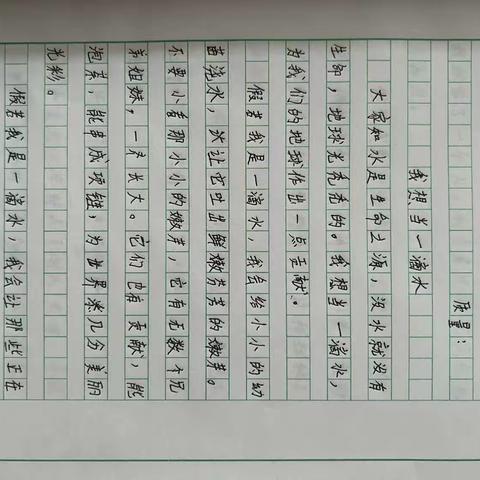 质量：
我想当一滴水
大家知水是生命之源，没水就没有
生命，地球光秃秃的。我想当一滴水，
为我们的地球作出一点贡献。
假若我是一滴水，我会给小小的幼
苗浇水，次让它吐出鲜嫩芳芳的嫩芽。
不要小看那小小的嫩芽，它有无数个兄
弟姐妹，一齐长大。它们也有贡献，能
泡茶，能串成项链，为世界添几分美丽
光彩。
假若我是一滴水，我会让那些正在